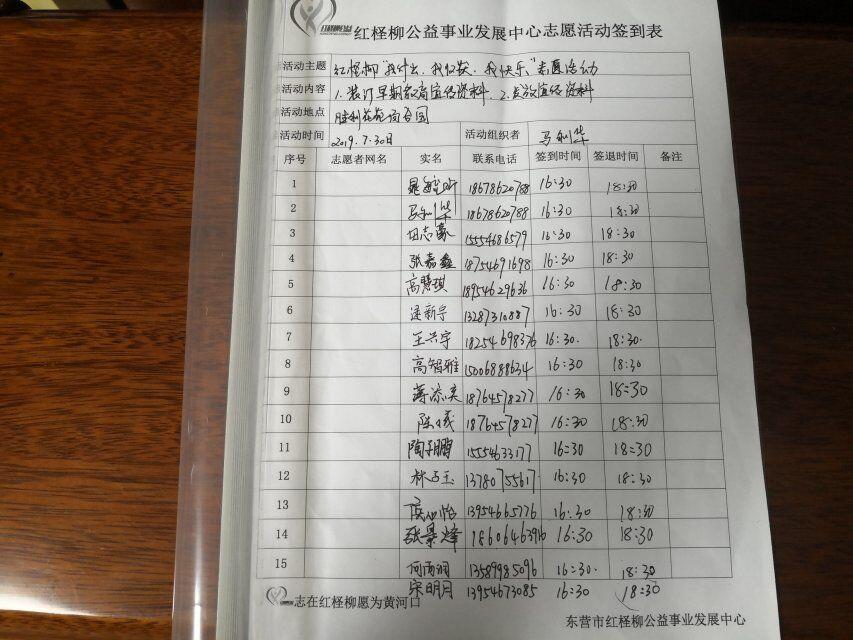 红柽柳公益事业发展中心志愿活动签到表
活动主题 红柽柳"我付出、我收获、我快乐"志愿活动
活动内容 1.装订早期教育宣传资料. 2.发放宣传资料
活动地点 胜利花苑
活动时间 2019.7.30日 活动组织者 马利华
序号 志愿者网名 实名 联系电话 签到时间 签退时间 备注
1 18678620788 16:30 18:30
2 马利华 18678620788 16:30 18:30
3 田志豪 15554686579 16:30 18:30
4 张嘉鑫 18754691698 16:30 18:30
5 高慧琪 18954629636 16:30 18:30
6 逯新宇 13287310887 16:30 18:30
7 王兴宇 18254698376 16:30. 18:30.
8 高智雅 15006888634 16:30 18:30
9 蒋 18764578277 16:30 18:30
10 陈 18764578277 16:30 18:30
11 陶子鹏 15554633177 16:30 18:30
12 林占玉 1378075561 16:30 18:30
13 13954665776 16:30 18:30
14 张景烽 18606463916 16:30 18:30
15 何雨润 13589985096 16:30. 18:30
宋明月 13954673085 16:30 18:30
志在红柽柳愿为黄河口
东营市红柽柳公益事业发展中心